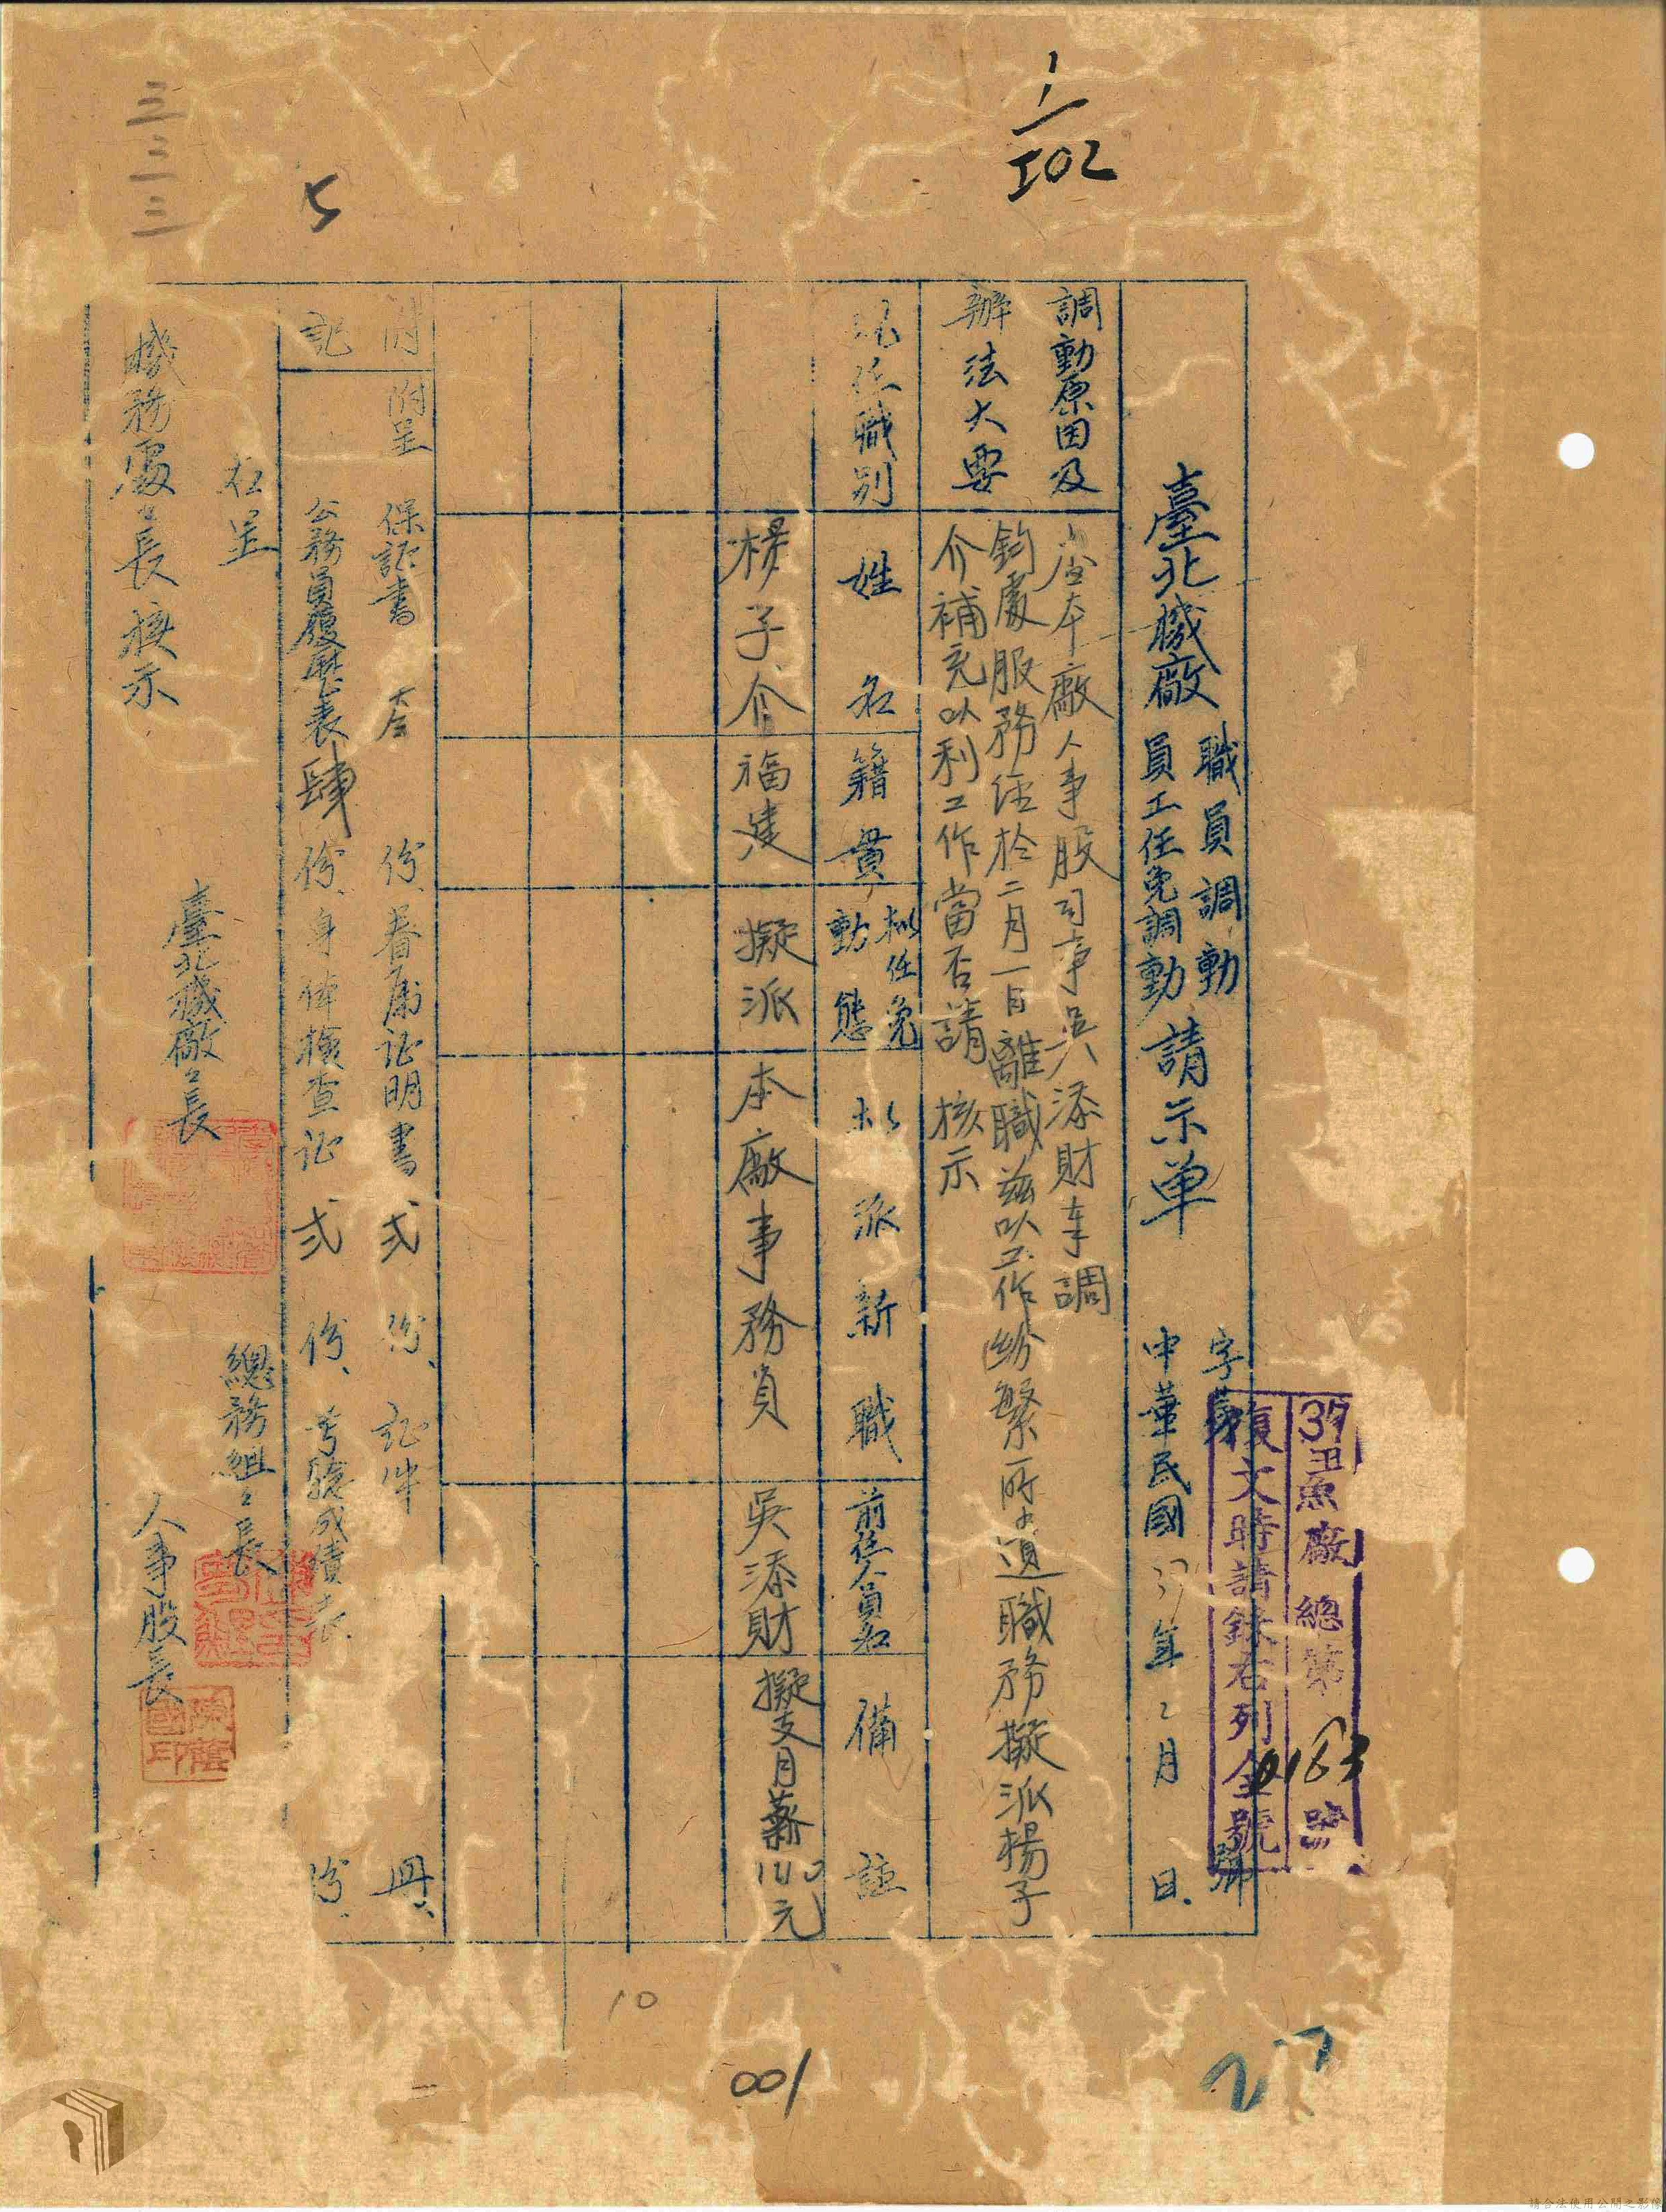 1/I02
臺北機廠 職員調動 員工任免調動 請示单
字第 號
中華民國37年2月 日
37丑魚廠總第 0183 號
復文時請錄右列全號
調動原因及
辦法大要
查本廠人事股司事吳添財奉調
鈞處服務經於二月一日離職茲以工作紛繁所遺職務擬派楊子
介補充以利工作當否請 核示
現任職別
姓名
籍貫
擬任免
動態
擬派新職
前任人員名
備註
楊子介
福建
擬派
本廠事務員
吳添財
擬支月薪 元
附記
附呈 保証書 份、眷屬证明書弍份、証件 冊、
公務員履歷表肆份、身体檢查证弍份、考驗成績表 份、
右呈
機務處處長核示
臺北機廠廠長
總務組組長
人事股長
三二三
5
10
001
27
請合法使用公開之影像